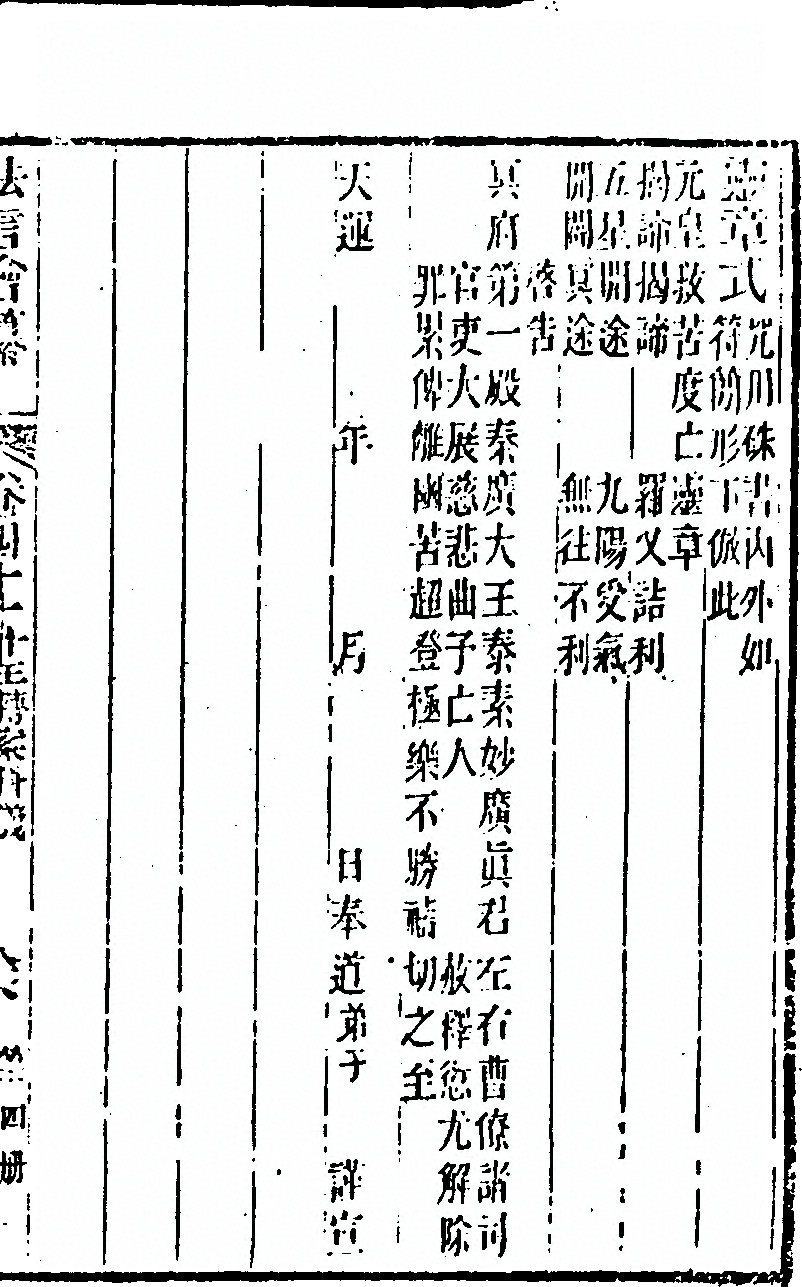 靈章式 咒用硃書內外如符簡形下倣此
元皇救苦度亡靈章
揭諦揭諦 羅乂詰利
五星開途 九陽受氣
開闢冥途 無往不利
啓告
冥府第一殿秦廣大王泰素妙廣眞君左右曹僚諸司
官吏大展慈悲曲予亡人 赦釋愆尤解除
罪累俾離幽苦超登極樂不勝禱切之至
天運 年 月 日奉道弟子 謹宣
法言會纂 卷四十 十王轉案科儀 四册